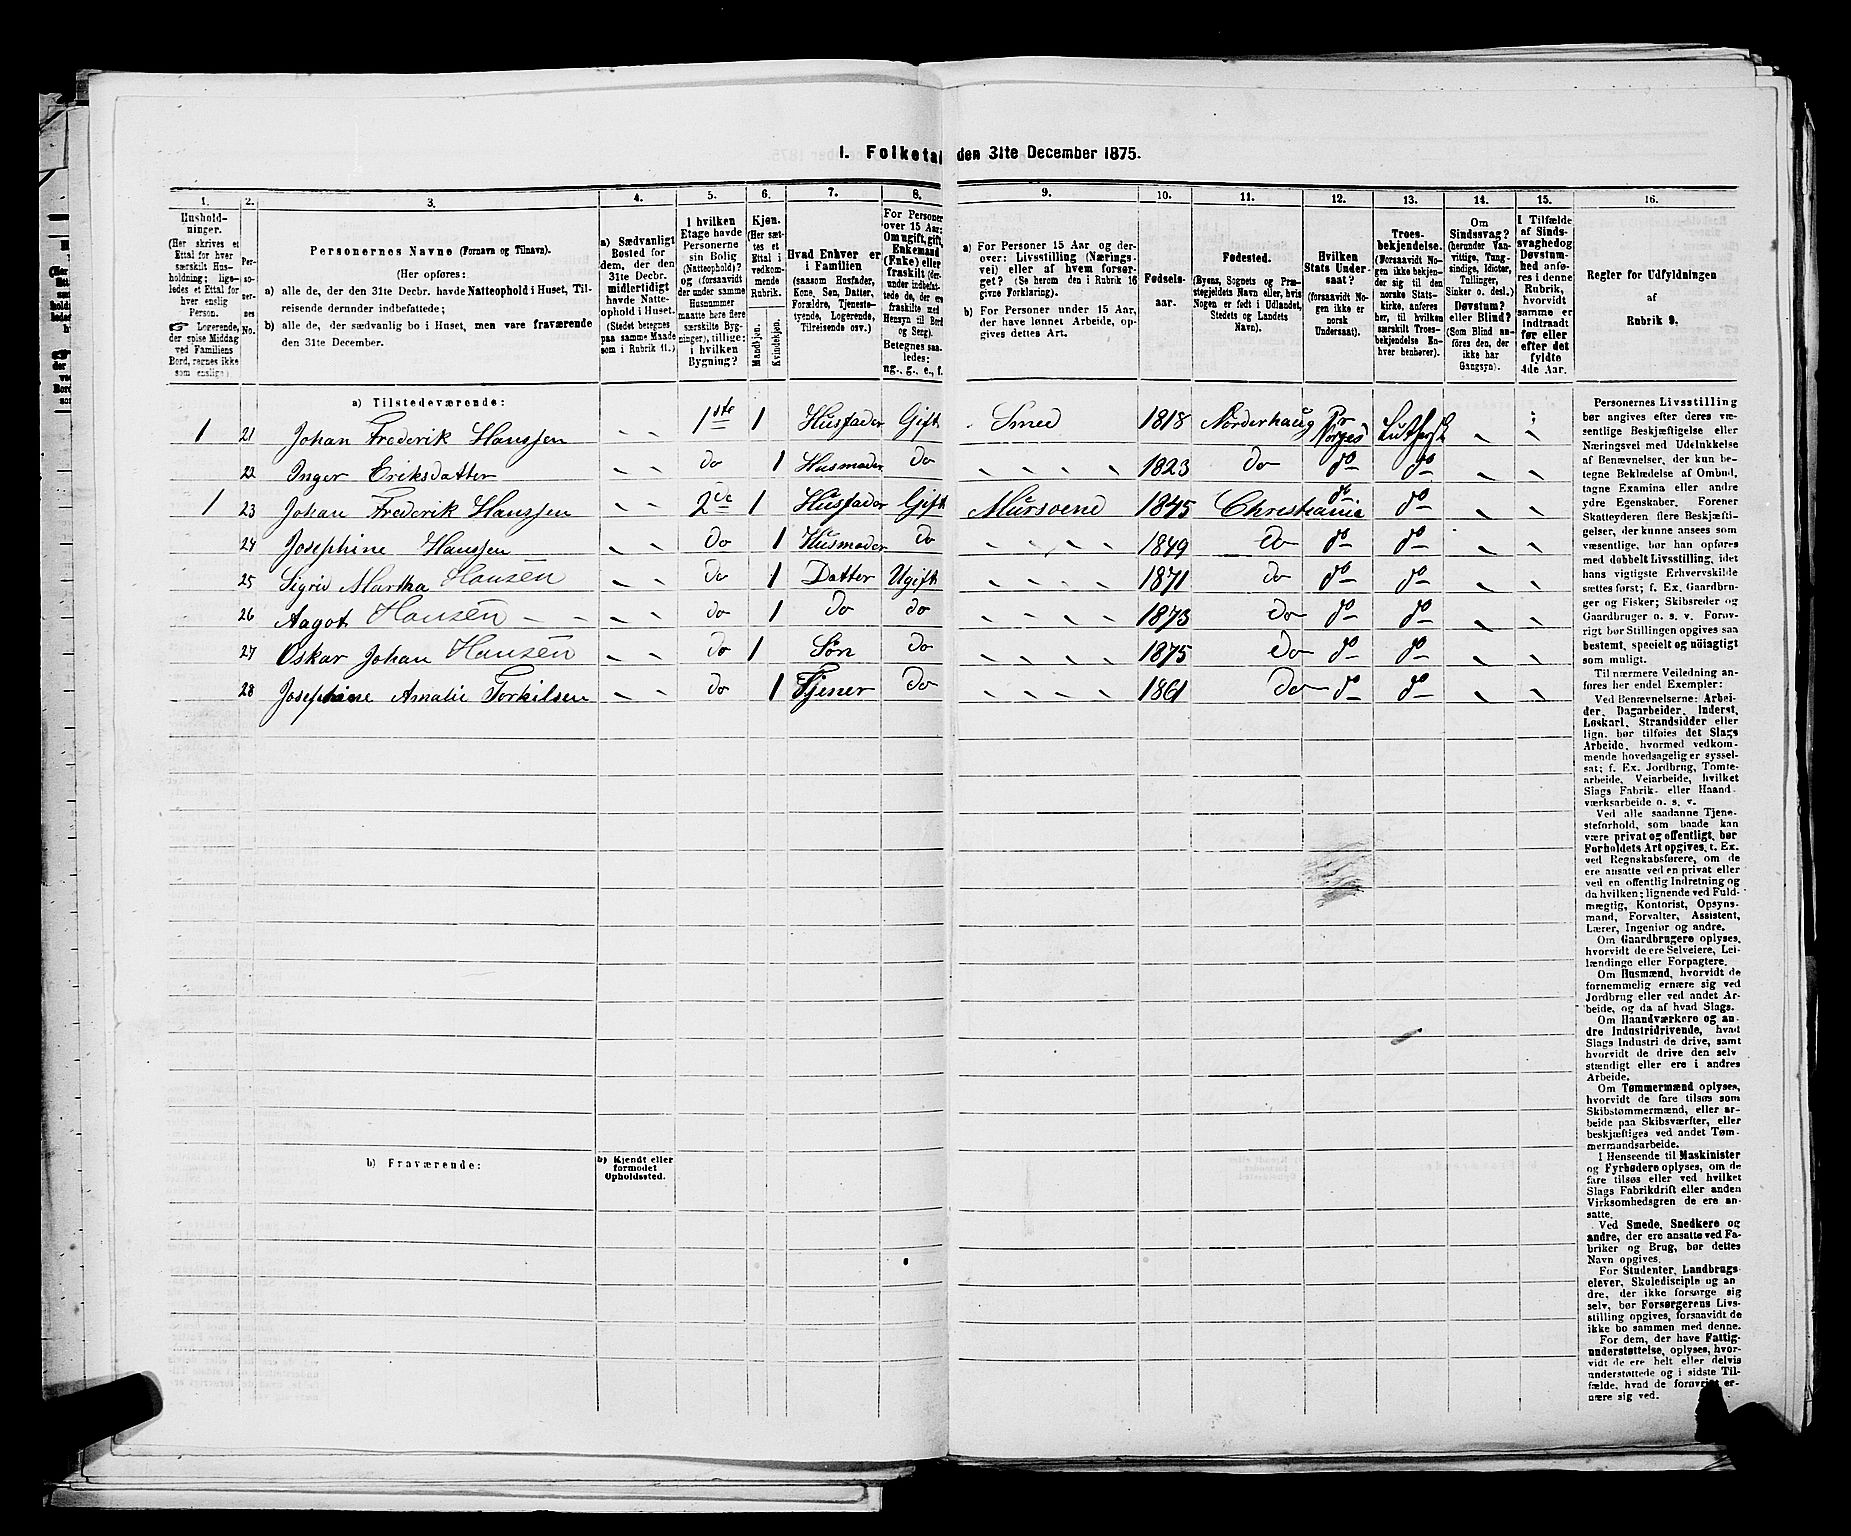 I. Folketal den 31te December 1875.
1. 2. 3. 4. 5. 6. 7. 8. 9. 10. 11. 12. 13. 14. 15. 16.
Hushold-
ninger.
(Her skrives et
Ettal for hver
særskilt Hus-
holdning; lige-
ledes et Ettal for
hver enslig
Person.
☞ Logerende,
der spise Middag
ved Familiens
Bord, regnes ikke
som enslige)
Per-
so-
ner-
nes
No.
Personernes Navne (Fornavn og Tilnavn).
(Her opføres:
a) alle de, der den 31te Decbr. havde Natteophold i Huset, Til-
reisende derunder indbefattede;
b) alle de, der sædvanlig bo i Huset, men vare fraværende
den 31te December.
a) Sædvanligt
Bosted for
dem, der den
31te Decbr.
midlertidigt
havde Natte-
ophold i Huset.
(Stedet betegnes
paa samme Maade
som i Rubrik 11.)
I hvilken
Etage havde
Personerne
sin Bolig
(Natteophold)?
og (forsaavidt
der under samme
Husnummer
maatte høre flere
særskilte Byg-
ninger), tillige:
i hvilken
Bygning?
Kjøn.
(Her sæt-
tes et
Ettal i
vedkom-
mende
Rubrik.
Mandkjøn.
Kvindekjøn.
Hvad Enhver er
i Familien
(saasom Husfader,
Kone, Søn, Datter,
Forældre, Tjeneste-
tyende, Logerende,
Tilreisende osv.)
For Personer
over 15 Aar:
Om ugift, gift,
Enkemand
(Enke) eller
fraskilt (der-
under indbefat-
tede de, der ere
fraskilte med
Hensyn til Bord
og Seng).
Betegnes saa-
ledes:
ug., g., e., f.
a) For Personer 15 Aar og der-
over: Livsstilling (Nærings-
vei) eller af hvem forsør-
get? (Se herom den i Rubrik 16
givne Forklaring).
b) For Personer under 15 Aar,
der have lønnet Arbeide, op-
gives dettes Art.
Fødsels-
aar.
Fødested.
(Byens, Sognets og Præ-
stegjeldets Navn eller, hvis
Nogen er født i Udlandet,
Stedets og Landets
Navn).
Hvilken
Stats Under-
saat?
(forsaavidt No-
gen ikke er
norsk
Undersaat).
Troes-
bekjendelse.
(Forsaavidt No-
gen ikke bekjen-
der sig til den
norske Stats-
kirke, anføres
her, til hvilken
særskilt Troes-
bekjendelse En-
hver henhører).
Om
Sindssvag?
(herunder Van-
vittige, Tung-
sindige, Idioter,
Tullinger,
Sinker o. desl.)
Døvstum?
eller Blind?
(Som Blind an-
føres den, der
ikke har
Gangsyn).
I Tilfælde
af Sinds-
svaghed og
Døvstum-
hed anfø-
res i denne
Rubrik,
hvorvidt
samme er
indtraadt
før eller
efter det
fyldte
4de Aar.
Regler for Udfyldningen
af
Rubrik 9.
a) Tilstedeværende:
1 21 Johan Frederik Hanssen 1ste 1 Husfader Gift Smed 1818 Norderhaug Norges Luthersk
22 Inger Eriksdatter do 1 Husmoder do 1823 do do do
1 23 Johan Frederik Hanssen 2de 1 Husfader Gift Mursvend 1845 Christiania do do
24 Josephine Hanssen do 1 Husmoder do 1849 do do do
25 Sigrid Martha Hansen do 1 Datter Ugift 1871 do do do
26 Aagot Hansen do 1 do do 1873 do do do
27 Oskar Johan Hansen do 1 Søn do 1875 do do do
28 Josephine Amalie Torkilsen do 1 Tjener do 1861 do do do
b) Fraværende:
b) Kjendt eller
formodet
Opholdssted.
Personernes Livsstilling
bør angives efter deres væ-
sentlige Beskjæftigelse eller
Næringsvei med Udelukkelse
af Benævnelser, der kun be-
tegne Beklædelse af Ombud,
tagne Examina eller andre
ydre Egenskaber. Forener
Skatteyderen flere Beskjæfti-
gelser, der kunne ansees som
væsentlige, bør han opføres
med dobbelt Livsstilling, idet
hans vigtigste Erhvervskilde
sættes først; f. Ex. Gaardbru-
ger og Fisker; Skibsreder og
Gaardbruger o. s. v. Forøv-
rigt bør Stillingen opgives saa
bestemt, specielt og nøiagtigt
som muligt.
Til nærmere Veiledning an-
føres her endel Exempler:
Ved Benævnelserne: Arbei-
der, Dagarbeider, Inderst,
Løskarl, Strandsidder eller
lign. bør tilføies det Slags
Arbeide, hvormed vedkom-
mende hovedsagelig er syssel-
sat; f. Ex. Jordbrug, Tomte-
arbeide, Veiarbeide, hvilket
Slags Fabrik- eller Haand-
værksarbeide o. s. v.
Ved alle saadanne Tjene-
steforhold, som baade kan
være privat og offentligt, bør
Forholdets Art opgives, t. Ex.
ved Regnskabsførere, om de
ere ansatte ved en privat eller
ved en offentlig Indretning og
da hvilken; lignende ved Fuld-
mægtig, Kontorist, Opsyns-
mand, Forvalter, Assistent,
Lærer, Ingeniør og andre.
Om Gaardbrugere oplyses,
hvorvidt de ere Selveiere, Lei-
lændinge eller Forpagtere.
Om Husmænd, hvorvidt de
fornemmelig ernære sig ved
Jordbrug eller ved andet Ar-
beide, og da af hvad Slags.
Om Haandværkere og an-
dre Industridrivende, hvad
Slags Industri de drive, samt
hvorvidt de drive den selv-
stændigt eller ere i andres
Arbeide.
Om Tømmermænd oplyses,
hvorvidt de fare tilsøs som
Skibstømmermænd, eller ar-
beide paa Skibsværfter, eller
beskjæftiges ved andet Tøm-
mermandsarbeide.
I Henseende til Maskinister
og Fyrbødere oplyses, om de
fare tilsøs eller ved hvilket
Slags Fabrikdrift eller anden
Virksomhedsgren de ere an-
satte.
Ved Smede, Snedkere og
andre, der ere ansatte ved Fa-
briker og Brug, bør dettes
Navn opgives.
For Studenter, Landbrugs-
elever, Skoledisciple og an-
dre, der ikke forsørge sig
selv, bør Forsørgerens Livs-
stilling opgives, forsaavidt de
ikke bo sammen med denne.
For dem, der have Fattig-
understøttelse, oplyses, hvor-
vidt de ere helt eller delvis
understøttede og i sidste Til-
fælde, hvad de forøvrigt er-
nære sig ved.